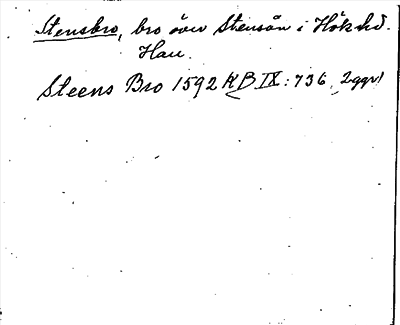 Stensbro, bro över Stensån i Hök hd.
Hall.
Steens Bro 1592 KB IX: 736, 2ggr)